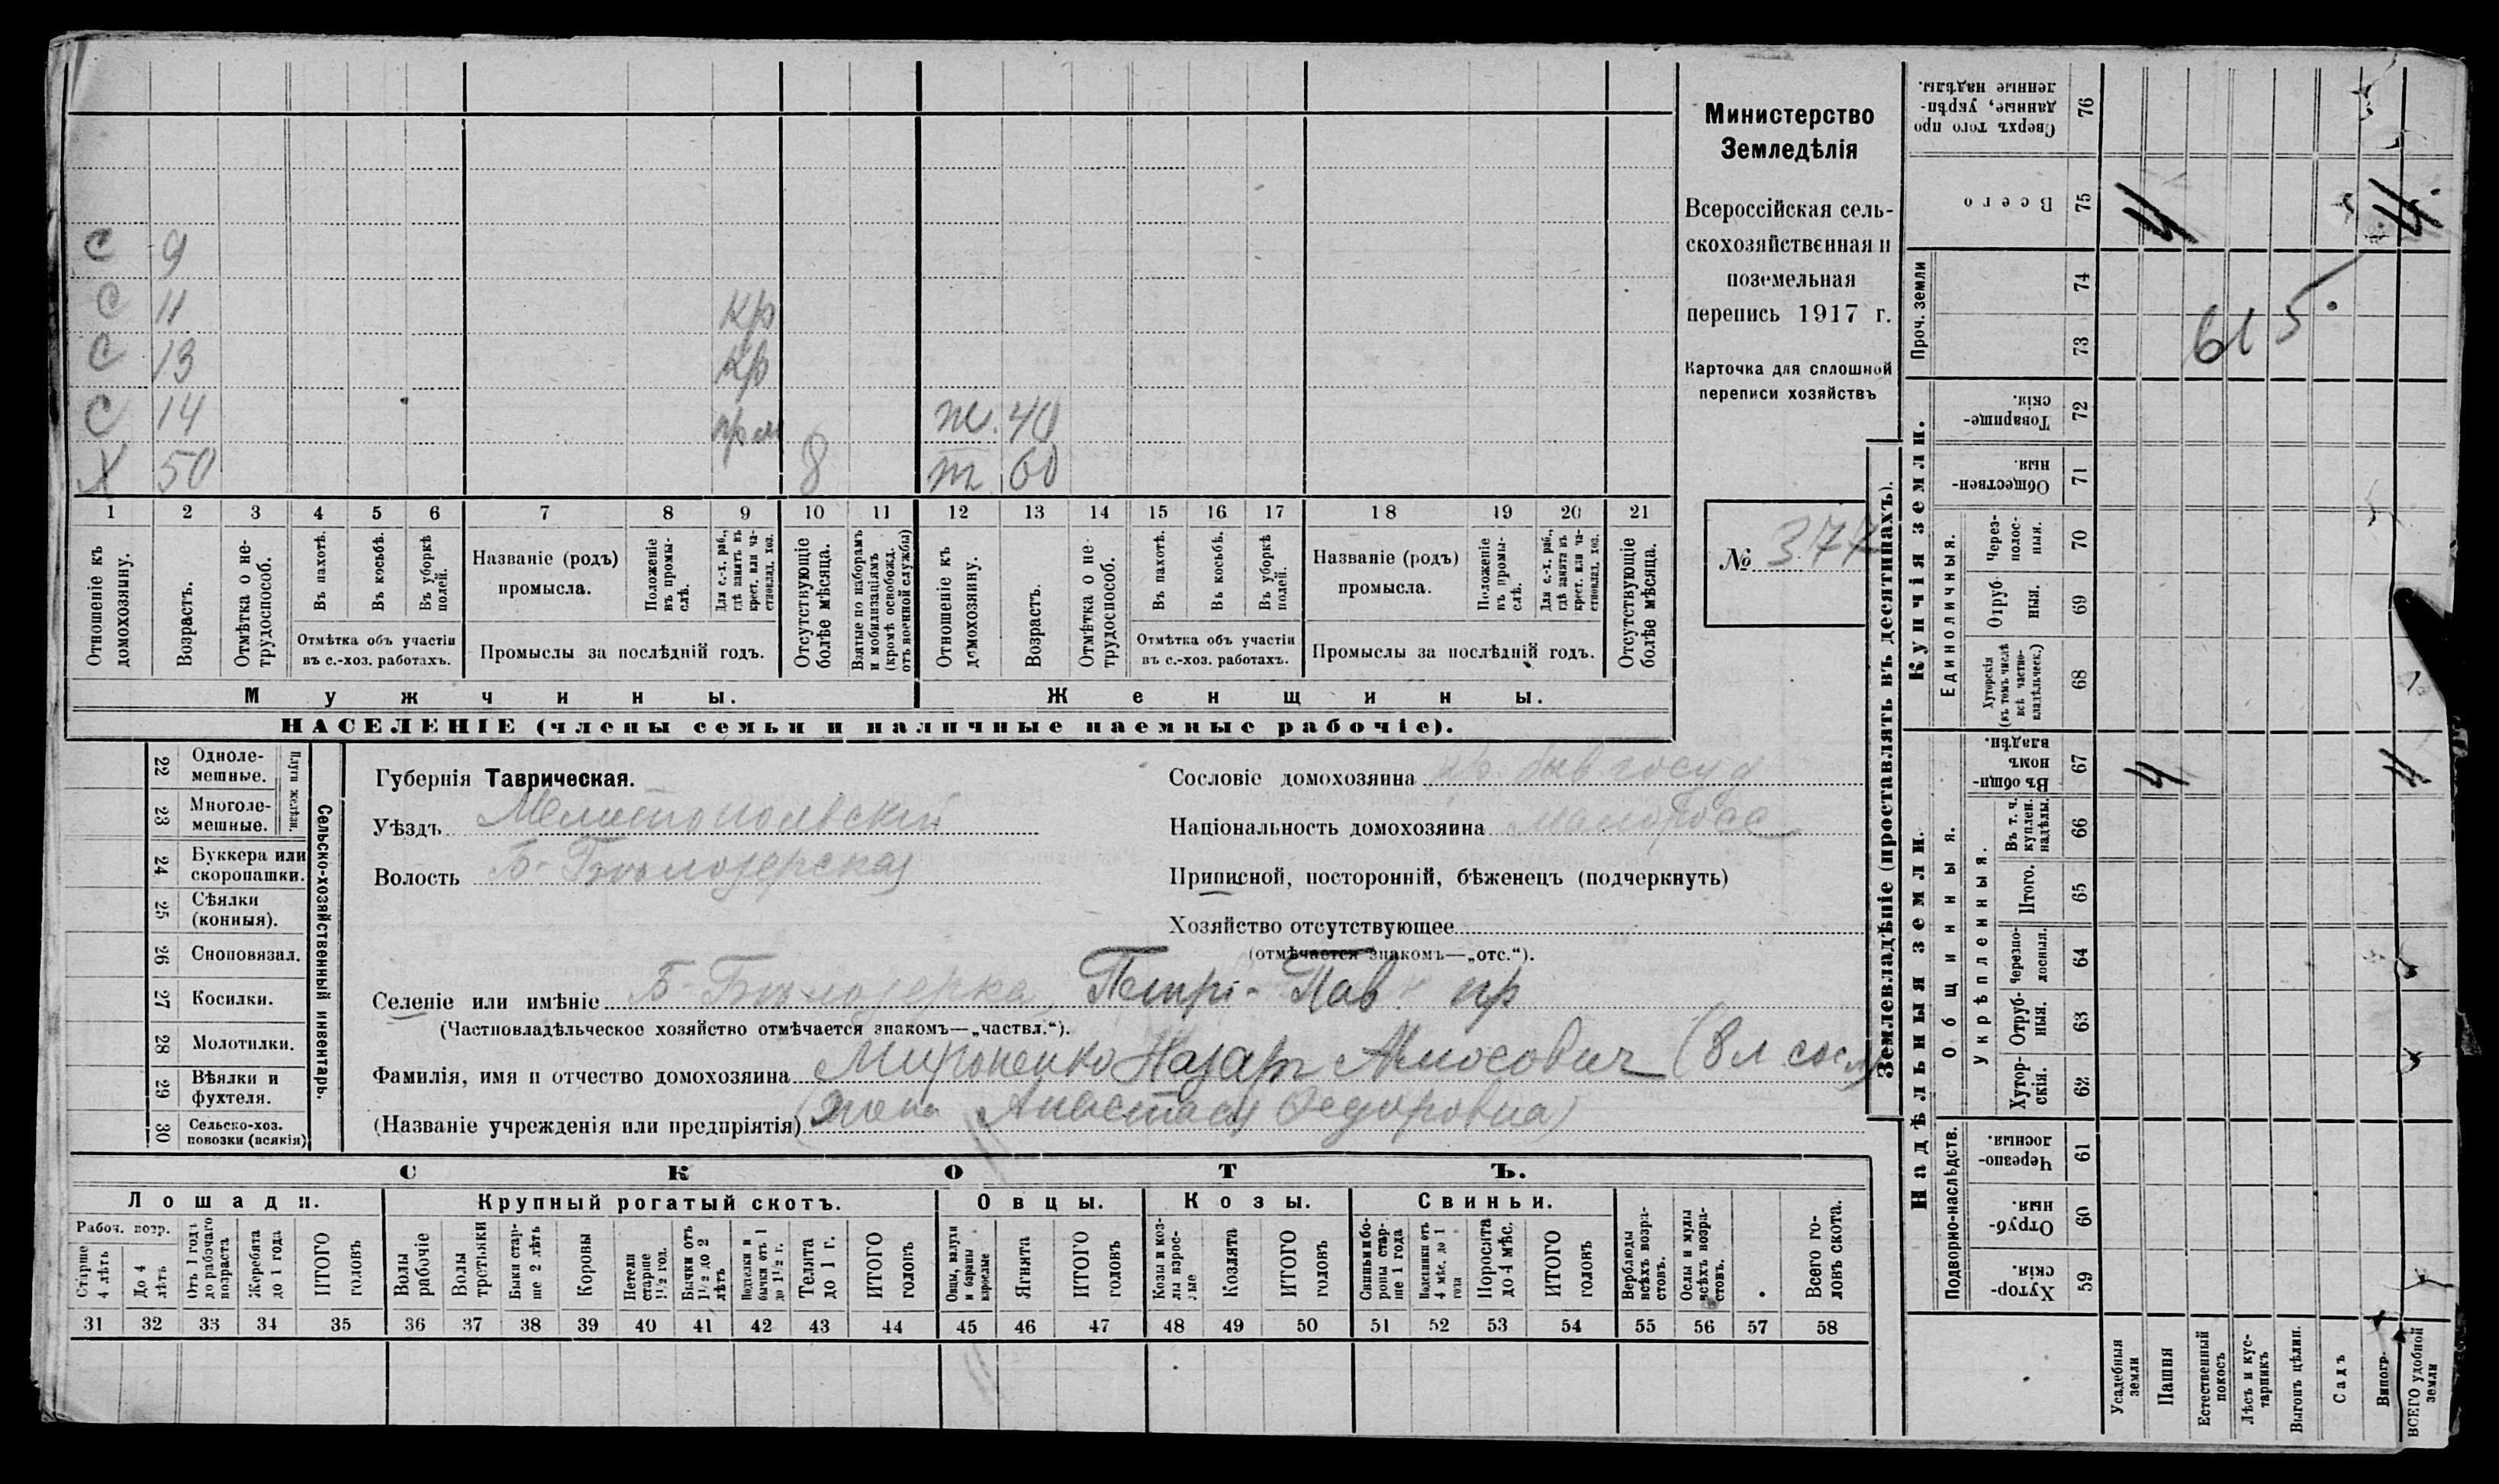 С 9
С 11 кр
С 13 кр
С 14 ж. 40
Х 50 8 т 60
1 2 3 4 5 6 7 8 9 10 11 12 13 14 15 16 17 18 19 20 21
Отношеніе къ домохозяину.
Возрастъ.
Отмѣтка о нетрудоспособ.
Въ пахотѣ.
Въ косьбѣ.
Въ уборкѣ полей.
Отмѣтка объ участіи
въ с.-хоз. работахъ.
Названіе (родъ)
промысла.
Положеніе въ промыслѣ.
Для с.-х. раб., гдѣ занятъ въ крест. или частновлад. хоз.
Промыслы за послѣдній годъ.
Отсутствующіе болѣе мѣсяца.
Взятые по наборамъ и мобилизаціямъ (кромѣ освобожд. отъ военной службы)
Отношеніе къ домохозяину.
Возрастъ.
Отмѣтка о нетрудоспособ.
Въ пахотѣ.
Въ косьбѣ.
Въ уборкѣ полей.
Отмѣтка объ участіи
въ с.-хоз. работахъ.
Названіе (родъ)
промысла.
Положеніе въ промыслѣ.
Для с.-х. раб., гдѣ занятъ въ крест. или частновлад. хоз.
Промыслы за послѣдній годъ.
Отсутствующіе болѣе мѣсяца.
Мужчины.
Женщины.
НАСЕЛЕНІЕ (члены семьи и наличные наемные рабочіе).
Министерство
Земледѣлія
Всероссійская сель-
скохозяйственная и
поземельная
перепись 1917 г.
Карточка для сплошной
переписи хозяйствъ
№ 377
22 Однолемешные.
23 Многолемешные.
Плуги желѣзн.
24 Буккера или скоропашки.
25 Сѣялки (конныя).
26 Сноповязал.
27 Косилки.
28 Молотилки.
29 Вѣялки и фухтеля.
30 Сельско-хоз. повозки (всякія)
Сельско-хозяйственный инвентарь.
Губернія Таврическая.
Уѣздъ Мелитопольскій
Волость Б-Бѣлозерская
Сословіе домохозяина кр. быв госуд
Національность домохозяина малоросс
Приписной, посторонній, бѣженецъ (подчеркнуть)
Хозяйство отсутствующее
(отмѣчается знакомъ—„отс.“).
Селеніе или имѣніе Б-Бѣлозерка, Петр-Пав пр
(Частновладѣльческое хозяйство отмѣчается знакомъ—„частвл.“).
Фамилія, имя и отчество домохозяина Мироненко Назарт Амосович (8 л
(Названіе учрежденія или предпріятія) (жена Анастасія Федоровна)
СКОТЪ.
Лошади.
Крупный рогатый скотъ.
Овцы.
Козы.
Свиньи.
Рабоч. возр.
Старше 4 лѣтъ
До 4 лѣтъ
Отъ 1 года до рабочаго возраста
Жеребята до 1 года
ИТОГО головъ
Волы рабочіе
Волы третьяки
Быки старше 2 лѣтъ
Коровы
Нетели старше 1½ год.
Бычки отъ 1½ до 2 лѣтъ
бычки отъ 1 до 1½ г.
Телята до 1 г.
ИТОГО головъ
Овцы, валухи и бараны взрослые
Ягнята
ИТОГО головъ
Козы и козлы взрослые
Козлята
ИТОГО головъ
Свиньи и боровы старше 1 года
Подсвинки отъ 4 мѣс. до 1 года
Поросята до 4 мѣс.
ИТОГО головъ
Верблюды всѣхъ возрастовъ.
Ослы и мулы всѣхъ возрастовъ.
Всего головъ скота.
31 32 33 34 35 36 37 38 39 40 41 42 43 44 45 46 47 48 49 50 51 52 53 54 55 56 57 58
Землевладѣніе (проставлять въ десятинахъ).
Купчія земли.
Надѣльныя земли.
Сверхъ того проданные, укрѣпленные надѣлы. 76
Всего 75 4 4
Проч. земли
74
73
61 5
Товарищескія. 72
Общественныя. 71
Единоличныя.
Черезполосныя. 70
Отрубныя. 69
Хуторскія (въ томъ числѣ всѣ частновладѣльческ.) 68
Общинныя.
Въ общинномъ владѣн. 67 4 4
Укрѣпленныя.
Въ т. ч. куплен. надѣлы. 66
Итого. 65
Черезполосныя. 64
Отрубныя. 63
Хуторскія. 62
Подворно-наслѣдств.
Черезполосныя. 61
Отрубныя. 60
Хуторскія. 59
Усадебныя земли
Пашня
Естественный покосъ
Лѣсъ и кустарникъ
Выгонъ цѣлин.
Садъ
Виногр.
ВСЕГО удобной земли